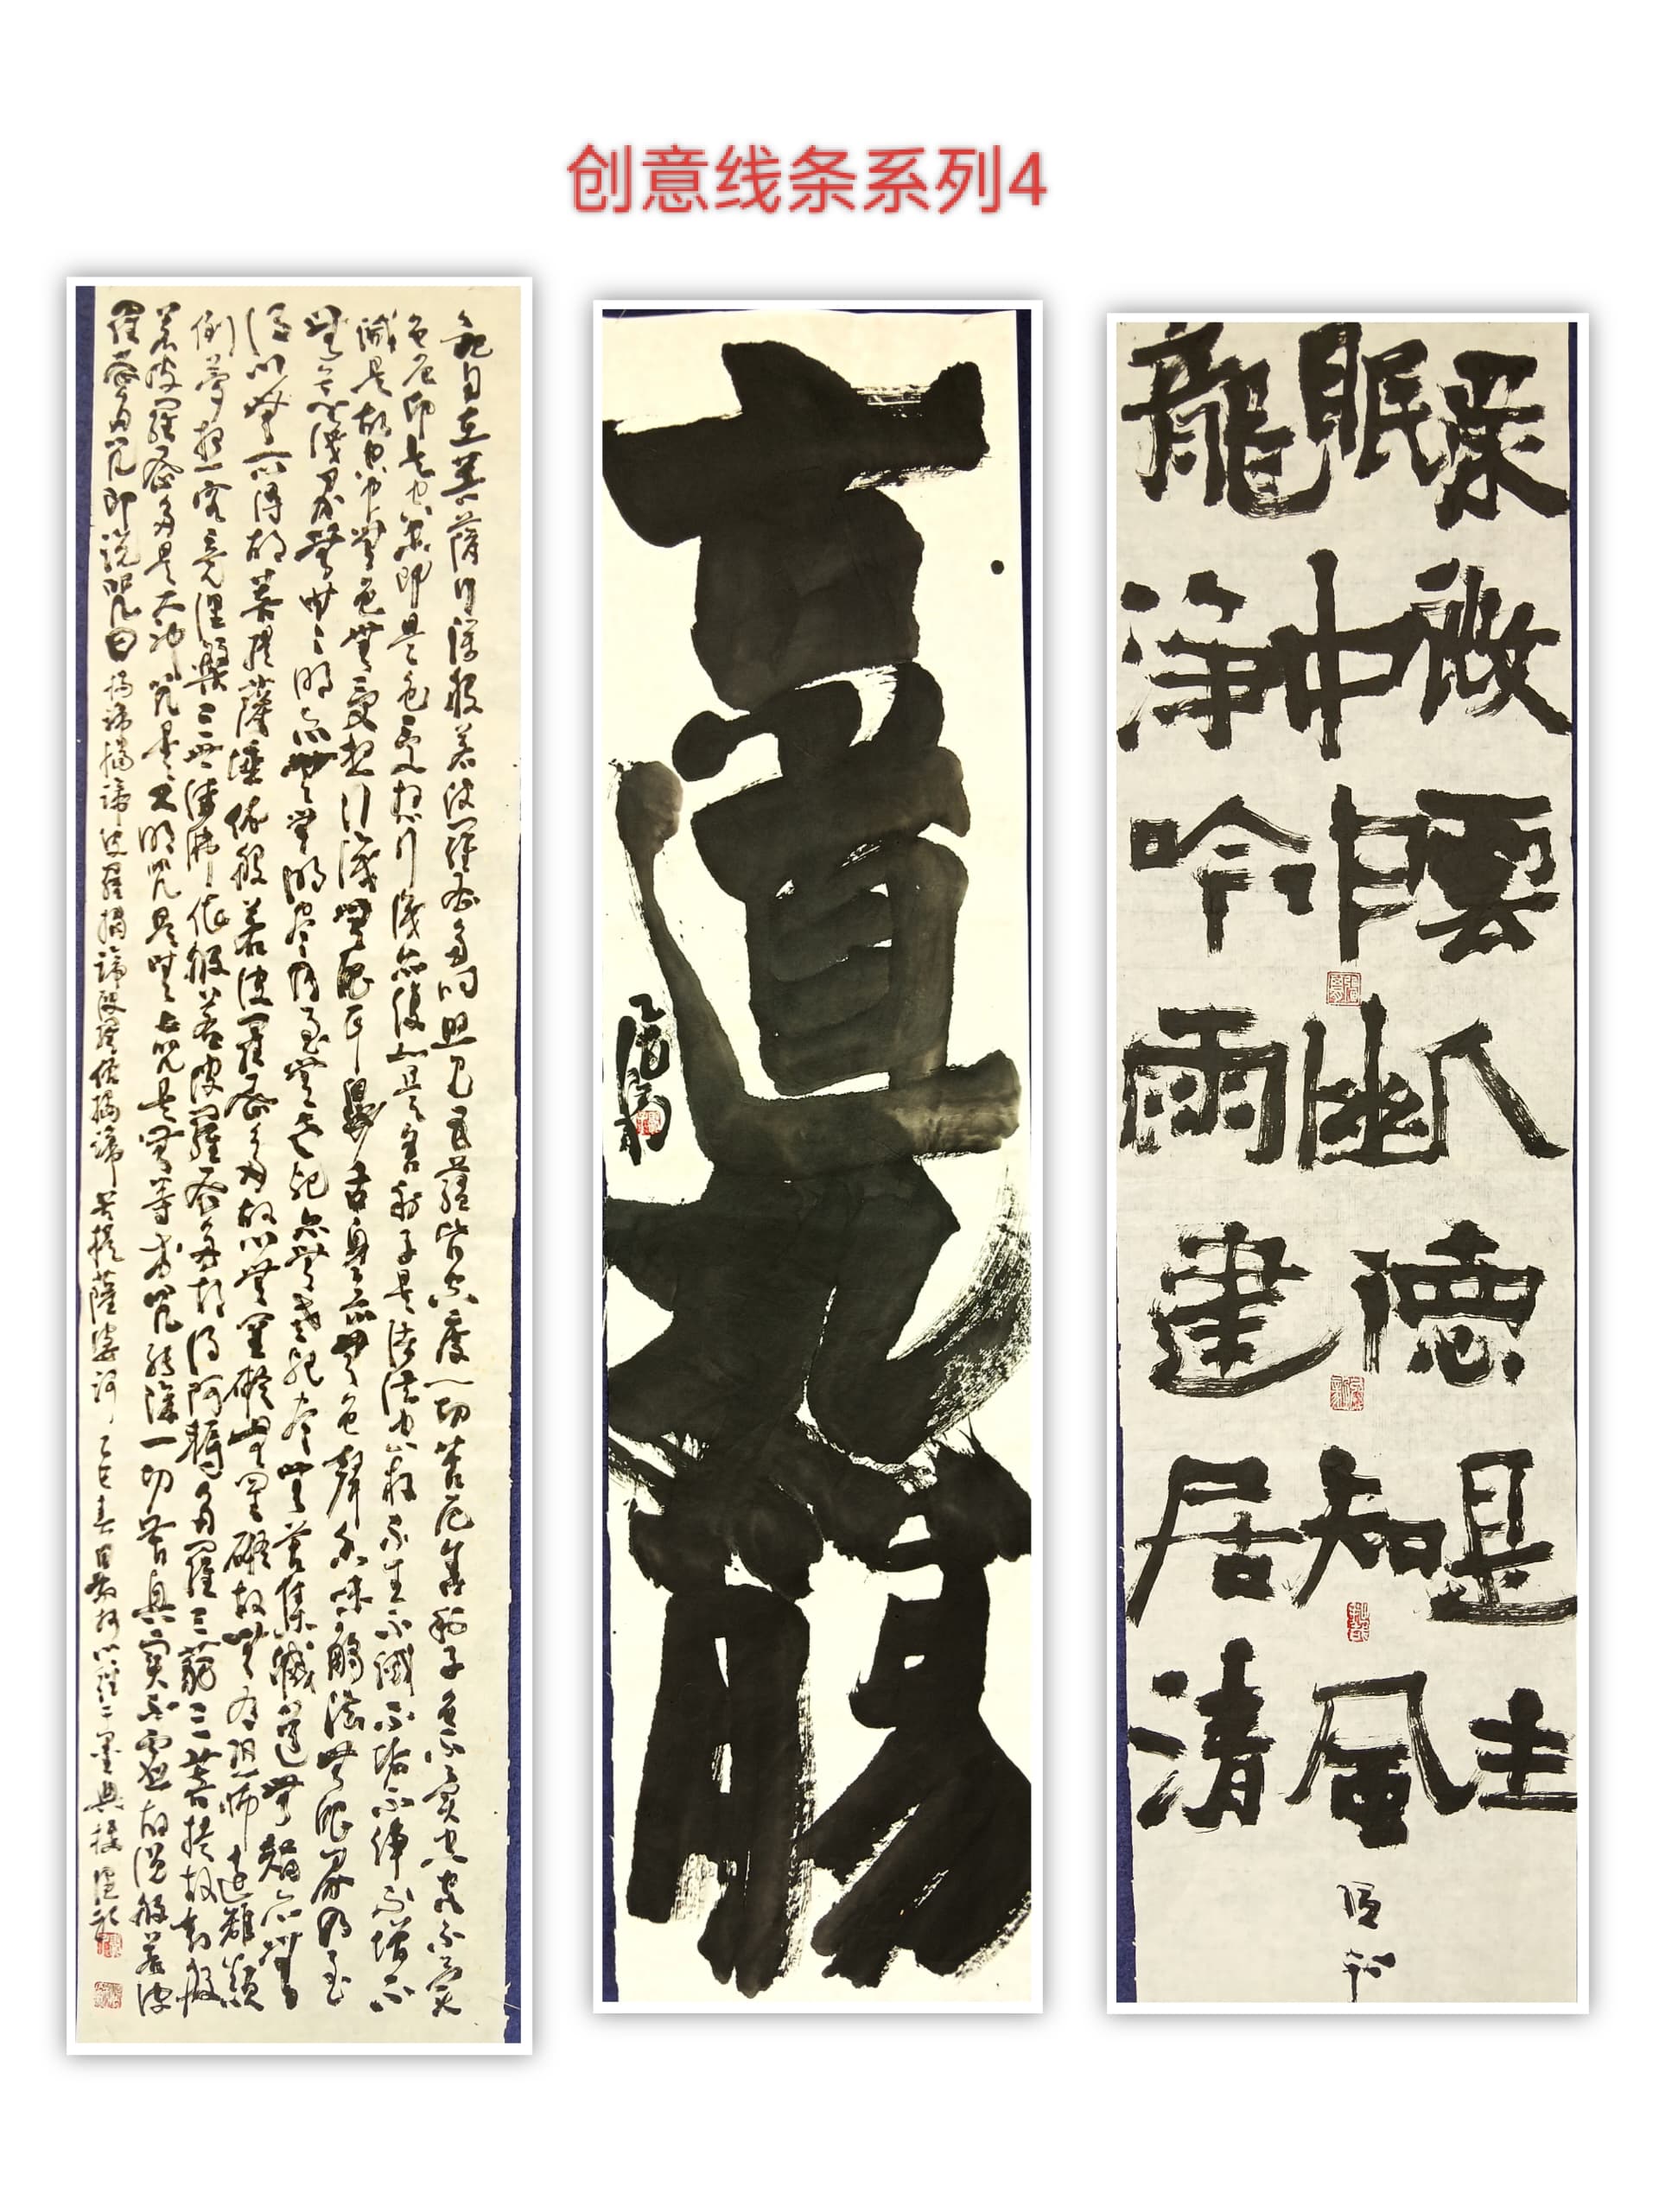 创意线条系列4
觀自在菩薩行深般若波羅蜜多時照見五蘊皆空度一切苦厄舍利子色不異空空不異
色色即是空空即是色受想行識亦復如是舍利子是諸法空相不生不滅不垢不淨不增不
減是故空中無色無受想行識無眼耳鼻舌身意無色聲香味觸法無眼界乃至
無意識界無無明亦無無明盡乃至無老死亦無老死盡無苦集滅道無智亦無
得以無所得故菩提薩埵依般若波羅蜜多故心無罣礙無罣礙故無有恐怖遠離顛
倒夢想究竟涅槃三世諸佛依般若波羅蜜多故得阿耨多羅三藐三菩提故知般
若波羅蜜多是大神咒是大明咒是無上咒是無等等咒能除一切苦真實不虛故說般若波
羅蜜多咒即說咒曰揭諦揭諦波羅揭諦波羅僧揭諦菩提薩婆訶乙巳春日
道勝
微雲人德是主
眠中昨幽知風
龍淨吟雨建居清